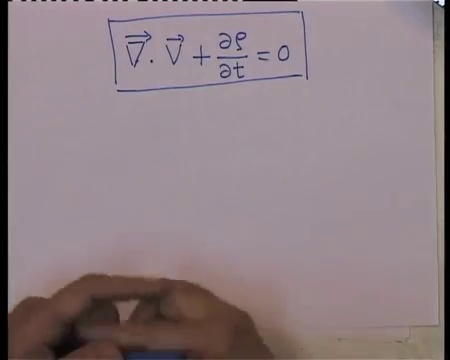 $\vec{\nabla} \cdot \vec{V} + \frac{\partial \rho}{\partial t} = 0$